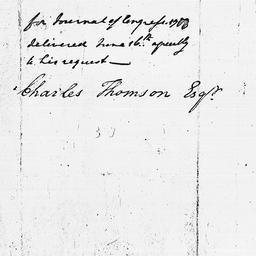 for Journal of Congress 1788
delivered June 16th agreeably
to his request —
Charles Thomson Esqr